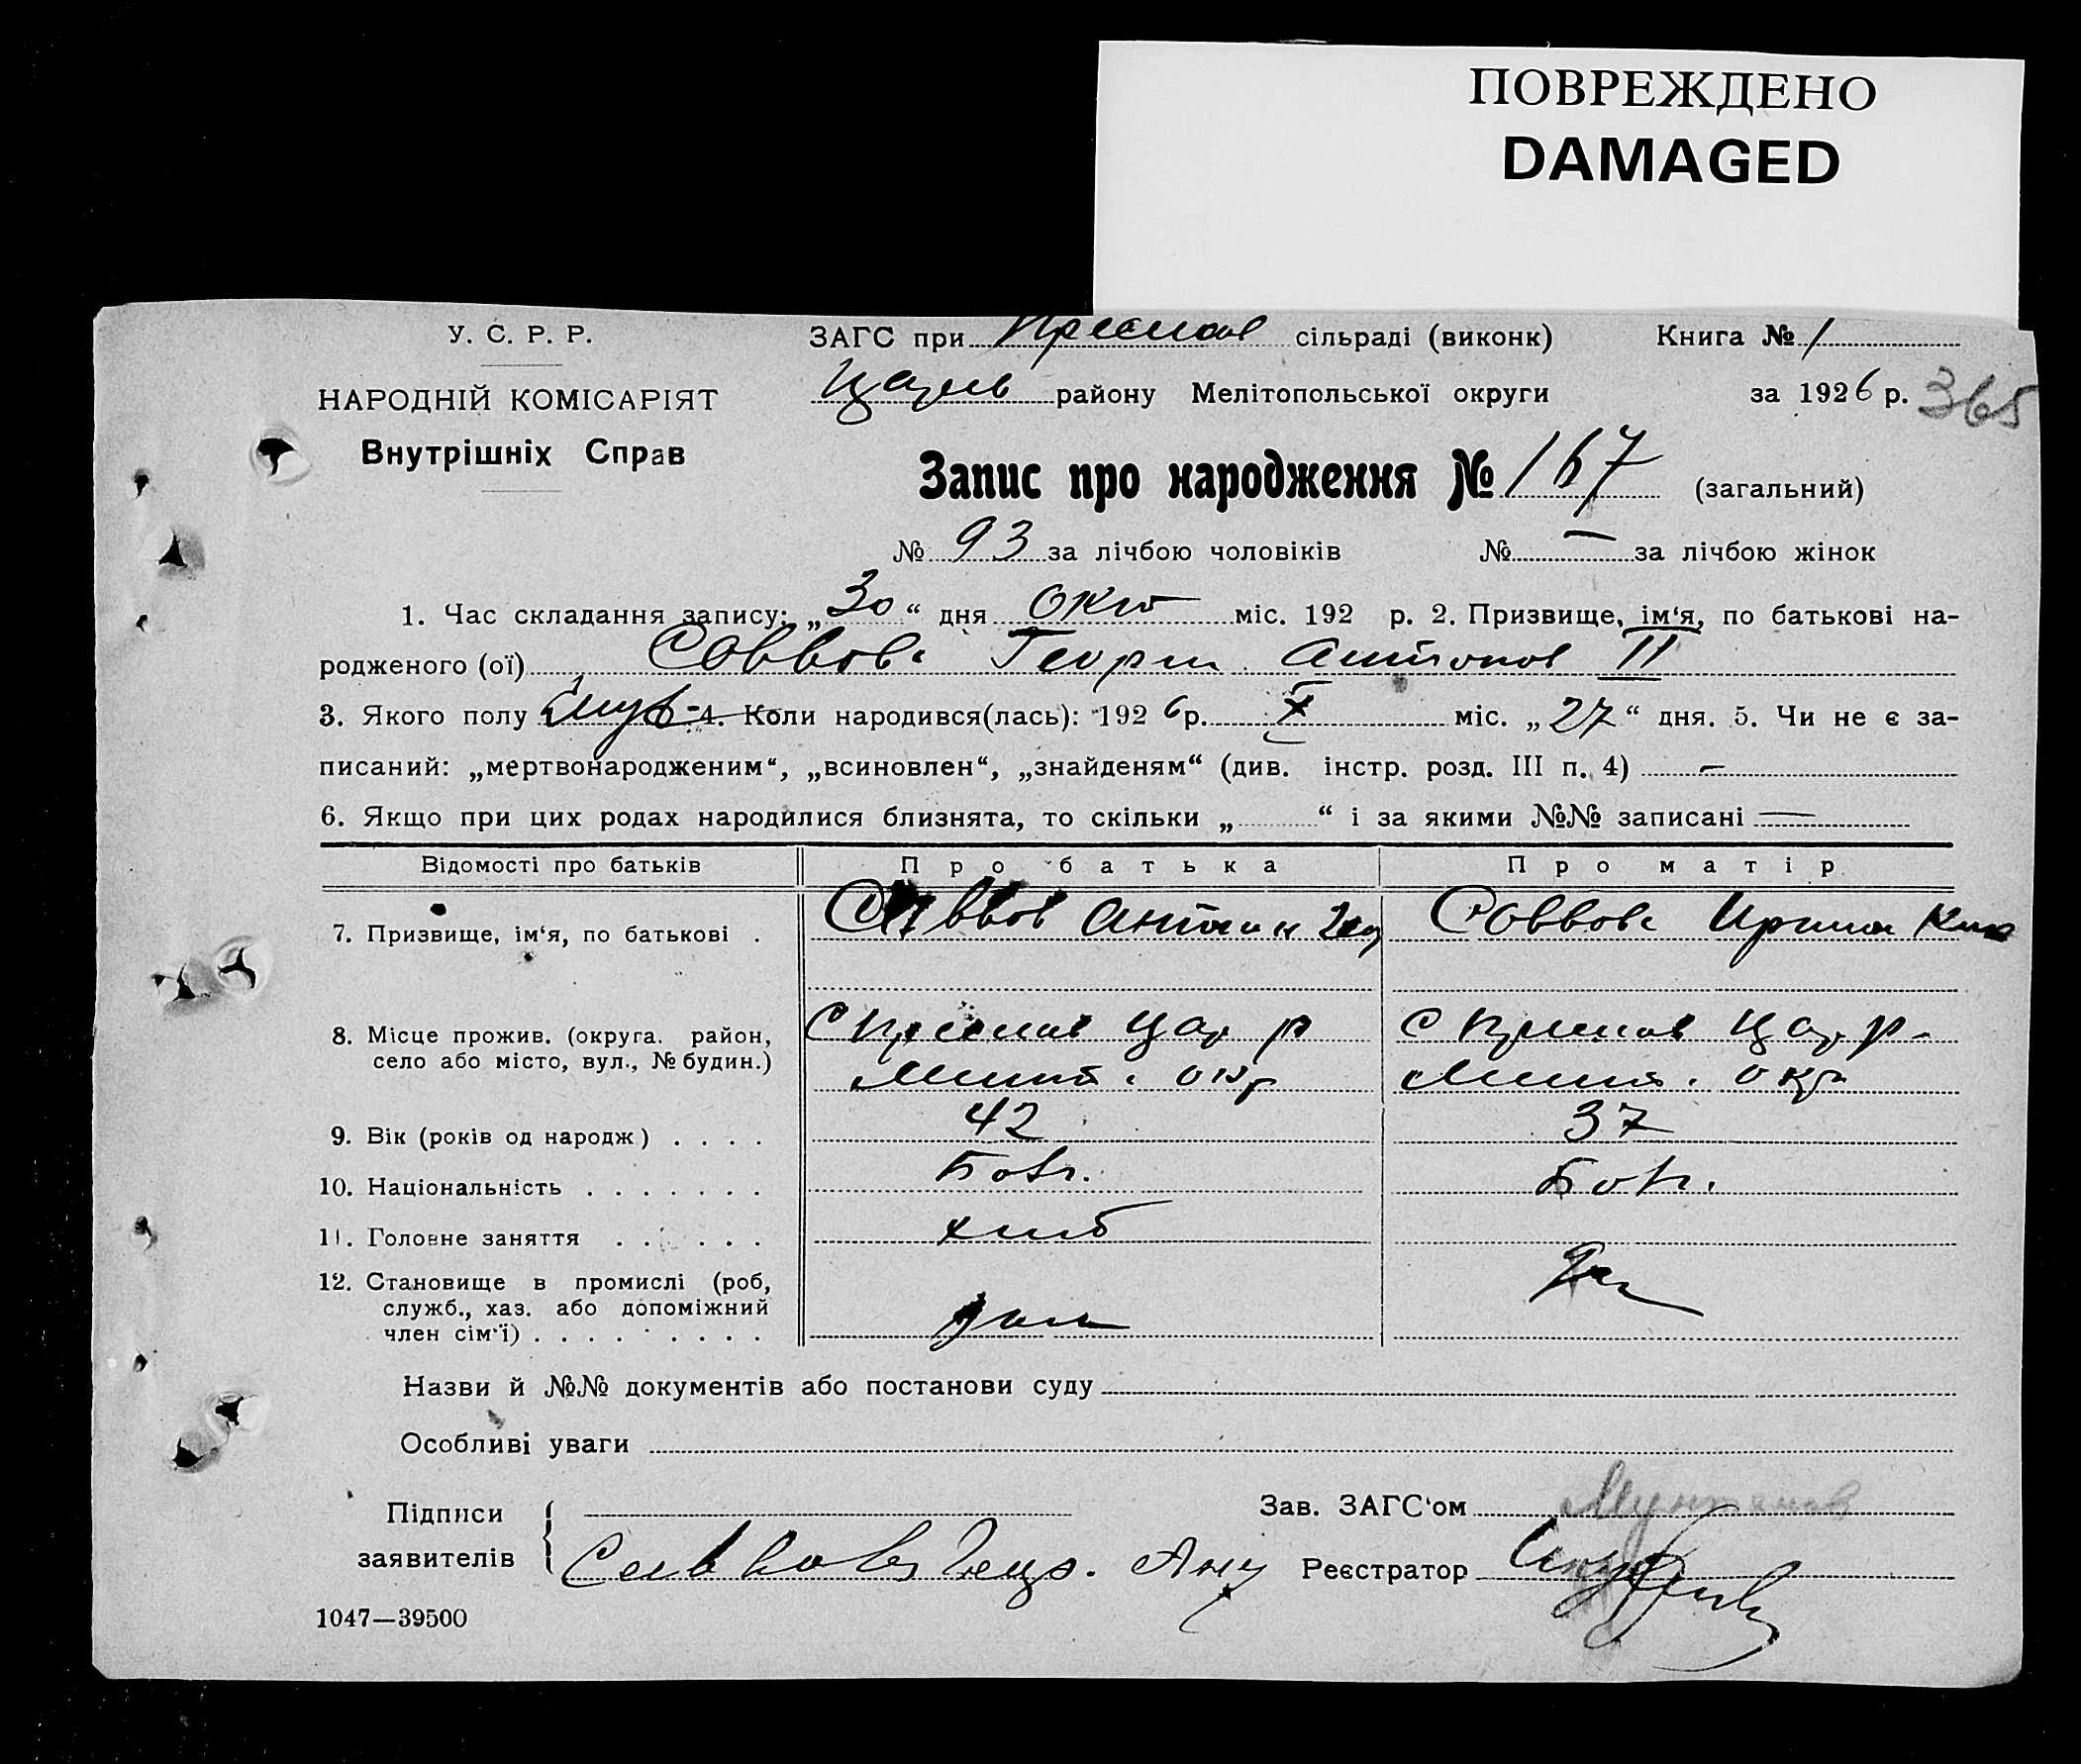 ПОВРЕЖДЕНО
DAMAGED
У. С. Р. Р.
НАРОДНІЙ КОМІСАРІЯТ
Внутрішніх Справ
ЗАГС при Преслав сільраді (виконк) Книга № 1
району Мелітопольської округи за 1926 р. 365
Запис про народження № 167 (загальний)
№ 93 за лічбою чоловіків № — за лічбою жінок
1. Час складання запису: „30“ дня Окт міс. 192 р. 2. Призвище, ім‘я, по батькові на-
родженого (ої) Саввов Георги Антонов II
3. Якого полу Муж 4. Коли народився(лась): 1926 р. X міс. „27“ дня. 5. Чи не є за-
писаний: „мертвонародженим“, „всиновлен“, „знайденям“ (див. інстр. розд. III п. 4) —
6. Якщо при цих родах народилися близнята, то скільки „ “ і за якими №№ записані —
Відомості про батьків Про батька Про матір
7. Призвище, ім‘я, по батькові . Саввов Антон Саввова Ирина
8. Місце прожив. (округа. район, с Преслав Цар р с Преслав Цар р-
село або місто, вул., № будин.) Мелит. окр Мелит. окр
9. Вік (років од народж) . . . . 42 37
10. Національність . . . . . . . Болг. Болг.
11. Головне заняття . . . . . . хліб
12. Становище в промислі (роб,
служб., хаз. або допоміжний
член сім‘ї) . . . . . . . . .
Назви й №№ документів або постанови суду
Особливі уваги
Підписи
заявителів
Зав. ЗАГС‘ом
Реєстратор
1047—39500